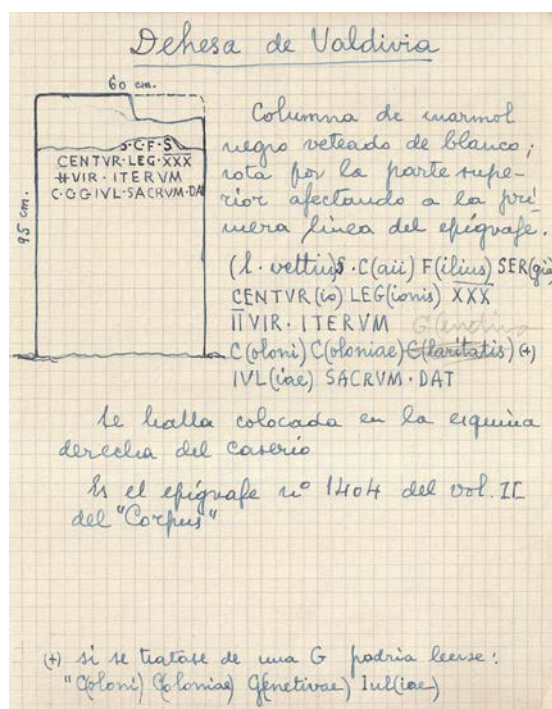 Dehesa de Valdivia
60 cm.
95 cm.
S·C·F·S
CENTVR·LEG·XXX
IIVIR·ITERVM
C·C·G·IVL·SACRVM·DAT
Columna de marmol
negro veteado de blanco;
rota por la parte supe-
rior afectando a la pri
mera línea del epígrafe.
(l. vettiu)S·C(aii) F(ilius) SER(gia)
CENTVR(io) LEG(ionis) XXX
IIVIR·ITERVM G(enetiva
C(oloni) C(oloniae) C(laritatis) (+)
IVL(iae) SACRVM·DAT
Se halla colocada en la esquina
derecha del caserio
Es el epígrafe nº 1404 del vol. II
del "Corpus"
(+) si se tratase de una G podría leerse:
"C(oloni) C(oloniae) G(enetivae) Iul(iae)